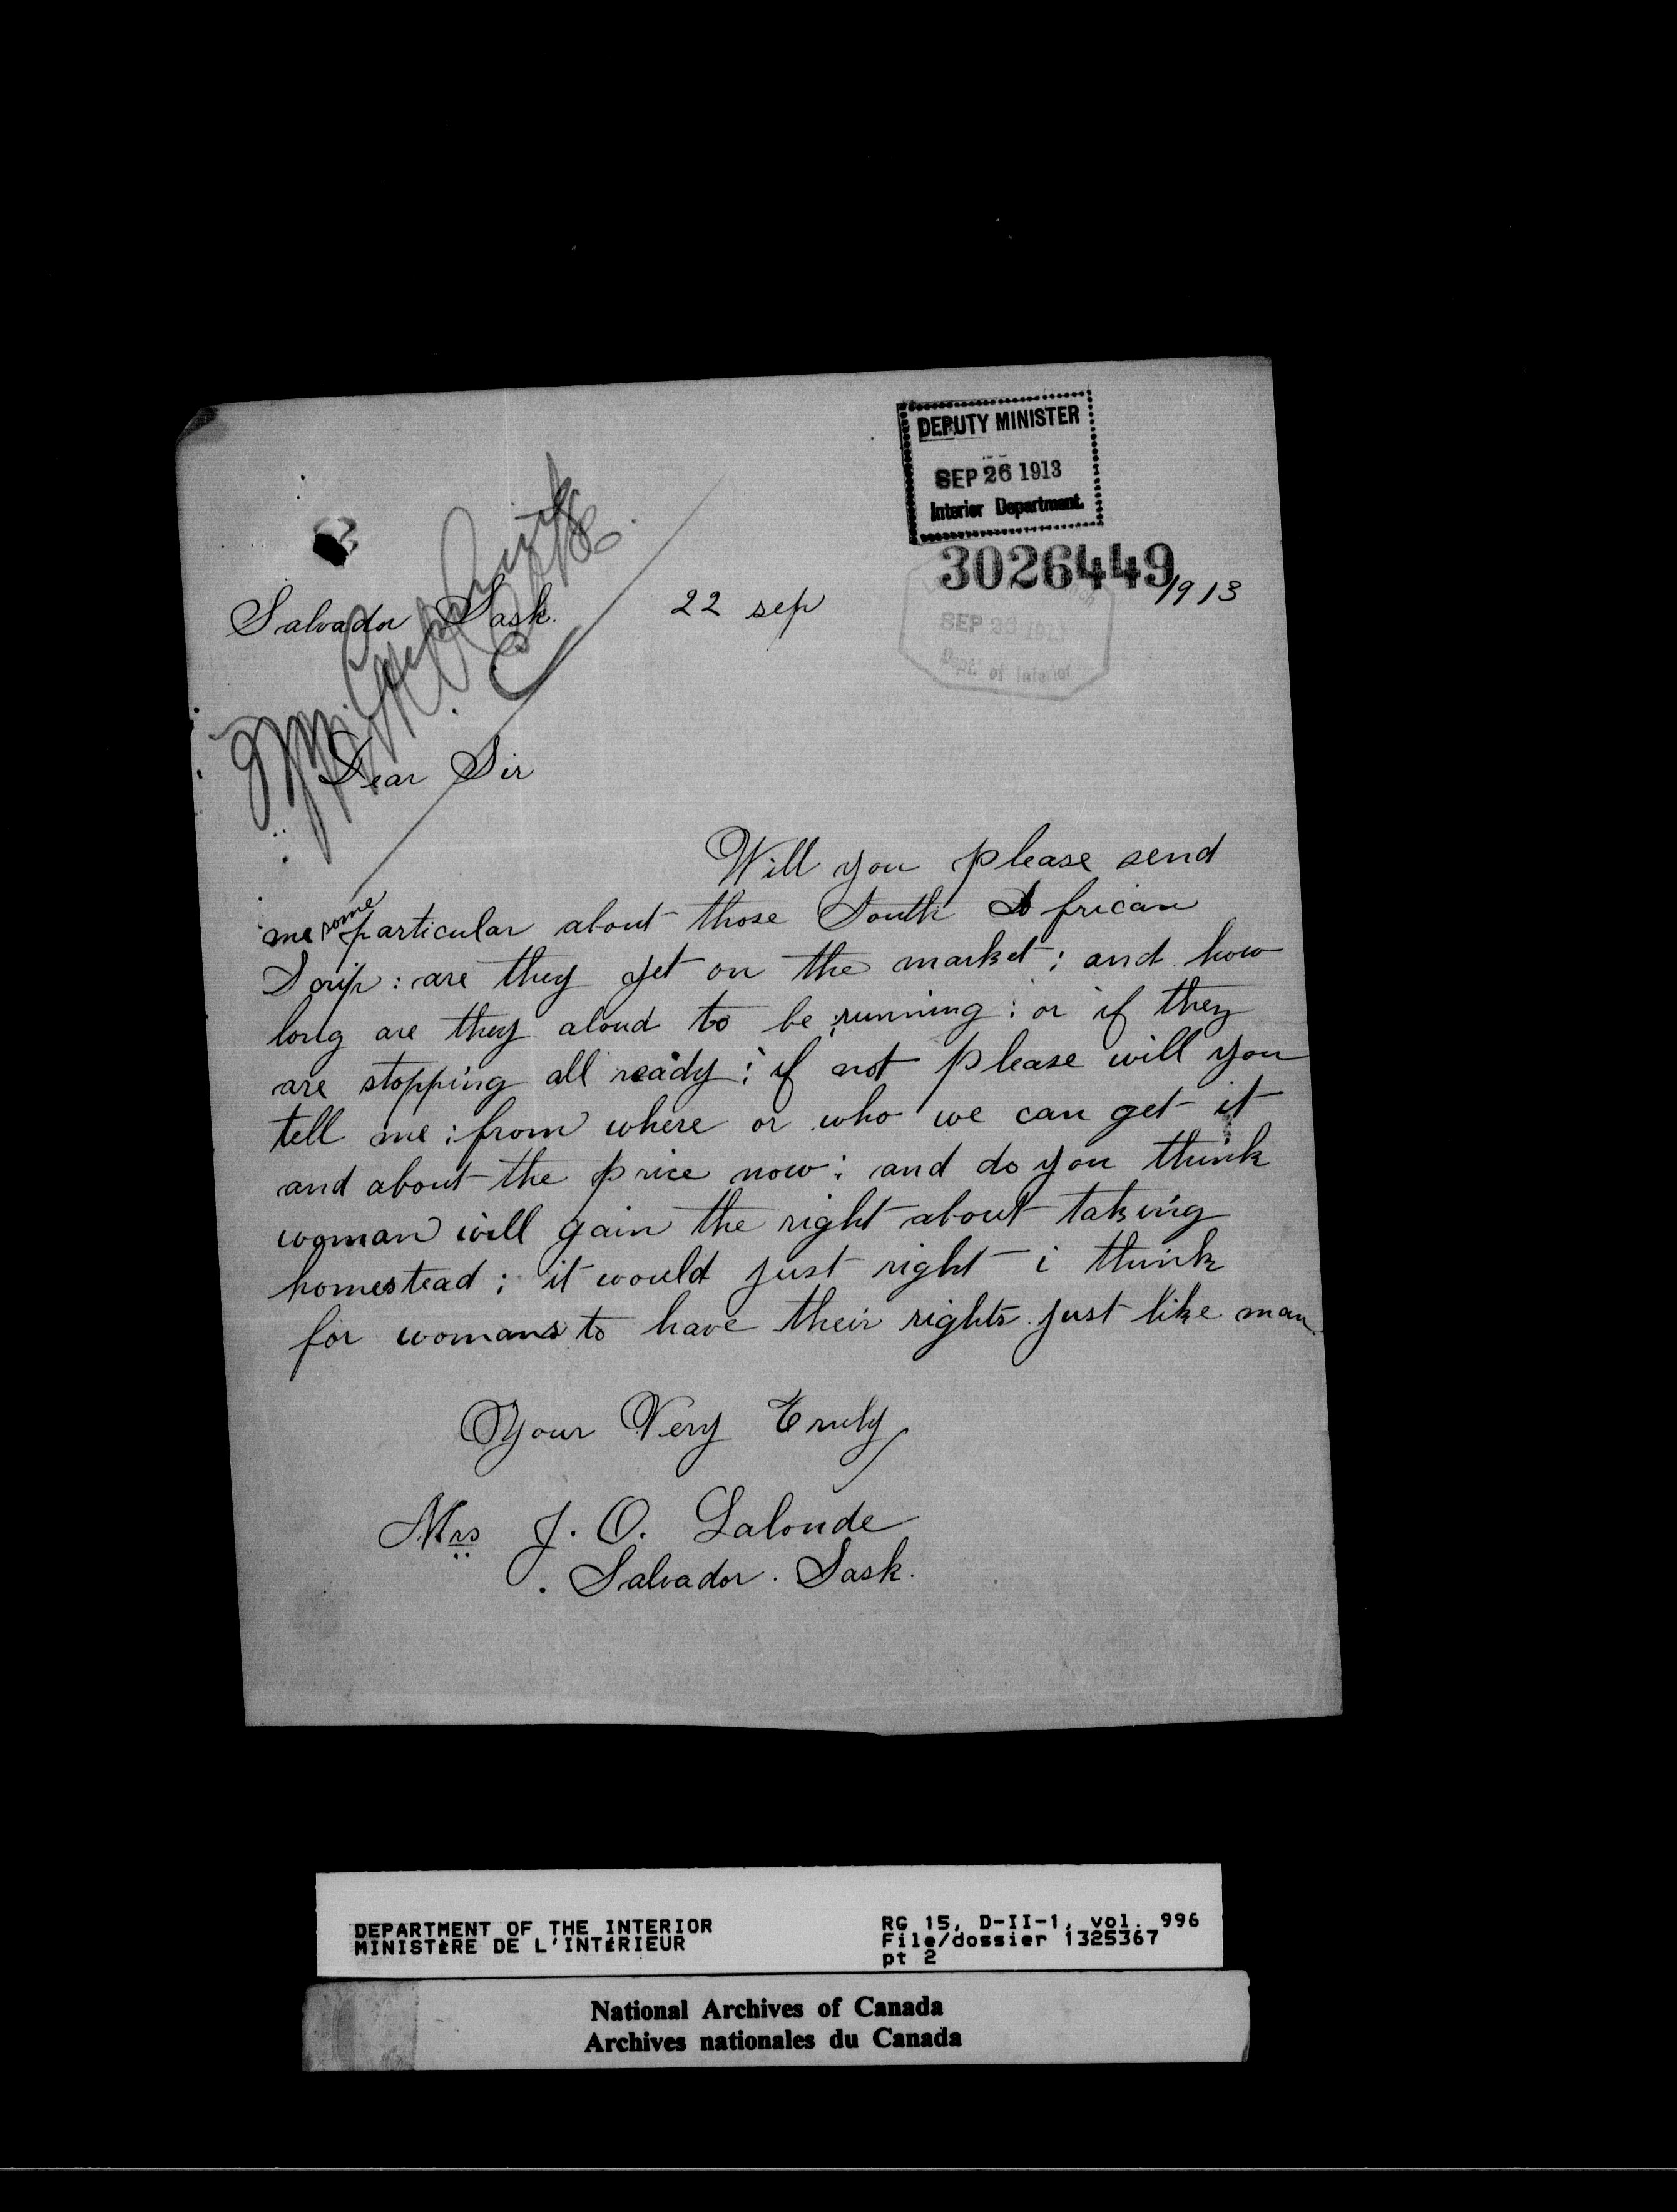 DEPUTY MINISTER
SEP 26 1913
Interior Department.
3026449
Salvador Sask. 22 sep 1913
SEP 26 1913
Dept. of Interior
Dear Sir
Will you please send
me some particular about those South African
Scrip : are they yet on the market ; and how
long are they aloud to be running ; or if they
are stopping all ready ; if not please will you
tell me ; from where or who we can get it
and about the price now ; and do you think
woman will gain the right about taking
homestead ; it would just right i think
for womans to have their rights just like man
Your Very Truly
Mrs J. O. Lalonde
Salvador. Sask.
DEPARTMENT OF THE INTERIOR
MINISTÈRE DE L'INTÉRIEUR
RG 15, D-II-1, vol. 996
File/dossier 1325367
pt 2
National Archives of Canada
Archives nationales du Canada